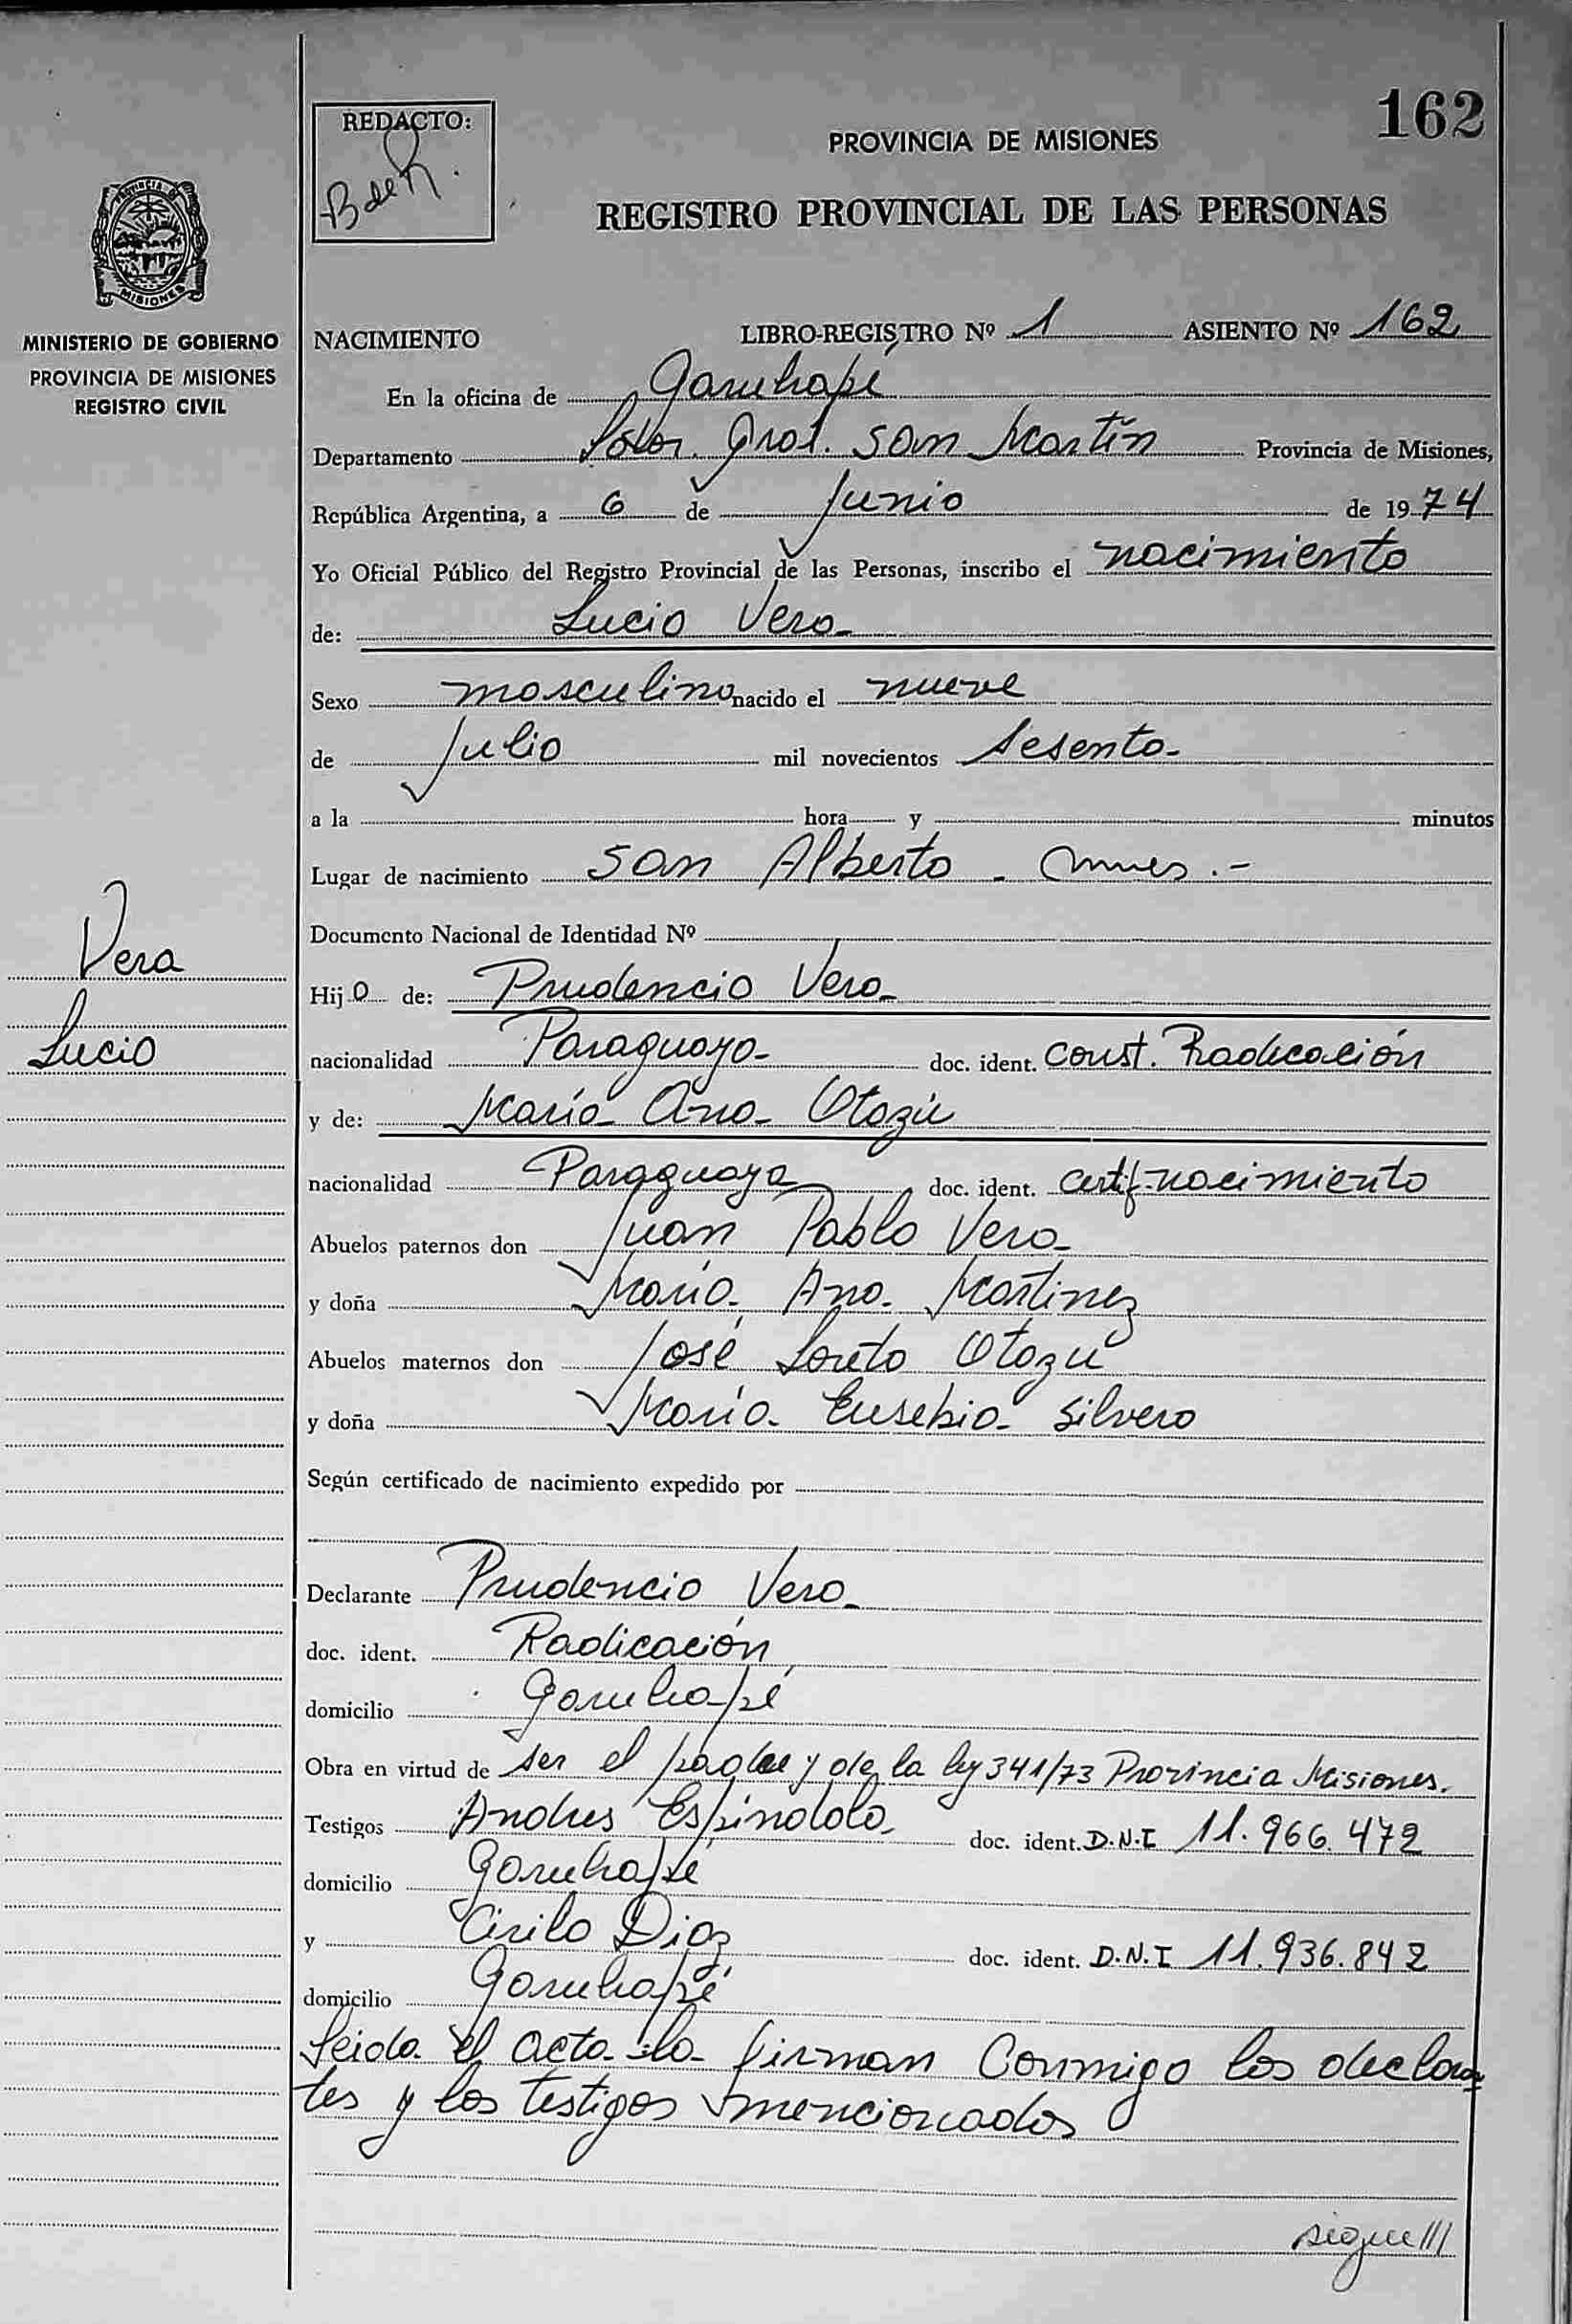 162
REDACTO:
B de R.
PROVINCIA DE MISIONES
REGISTRO PROVINCIAL DE LAS PERSONAS
PROVINCIA DE
MISIONES
MINISTERIO DE GOBIERNO
PROVINCIA DE MISIONES
REGISTRO CIVIL
NACIMIENTO LIBRO-REGISTRO Nº 1 ASIENTO Nº 162
En la oficina de Garuhapé
Departamento Gral. San Martín Provincia de Misiones,
República Argentina, a 6 de Junio de 1974
Yo Oficial Público del Registro Provincial de las Personas, inscribo el nacimiento
de: Lucio Vera
Sexo masculino nacido el nueve
de Julio mil novecientos sesenta
a la hora y minutos
Lugar de nacimiento San Alberto - Mnes.-
Documento Nacional de Identidad Nº
Vera
Lucio
Hijo de: Prudencio Vera
nacionalidad Paraguaya doc. ident. Const. Radicación
y de: María Ana Otazú
nacionalidad Paraguaya doc. ident. certif. nacimiento
Abuelos paternos don Juan Pablo Vera
y doña María Ana Martinez
Abuelos maternos don José Loreto Otazú
y doña María Eusebia Silvero
Según certificado de nacimiento expedido por
Declarante Prudencio Vera
doc. ident. Radicación
domicilio Garuhapé
Obra en virtud de ser el padre y de la ley 341/73 Provincia Misiones.
Testigos Andres Espindola doc. ident. D.N.I 11.966.472
domicilio Garuhapé
y Cirilo Diaz doc. ident. D.N.I 11.936.842
domicilio Garuhapé
Leida el acta la firman conmigo los declaran
tes y los testigos mencionados
sigue ///